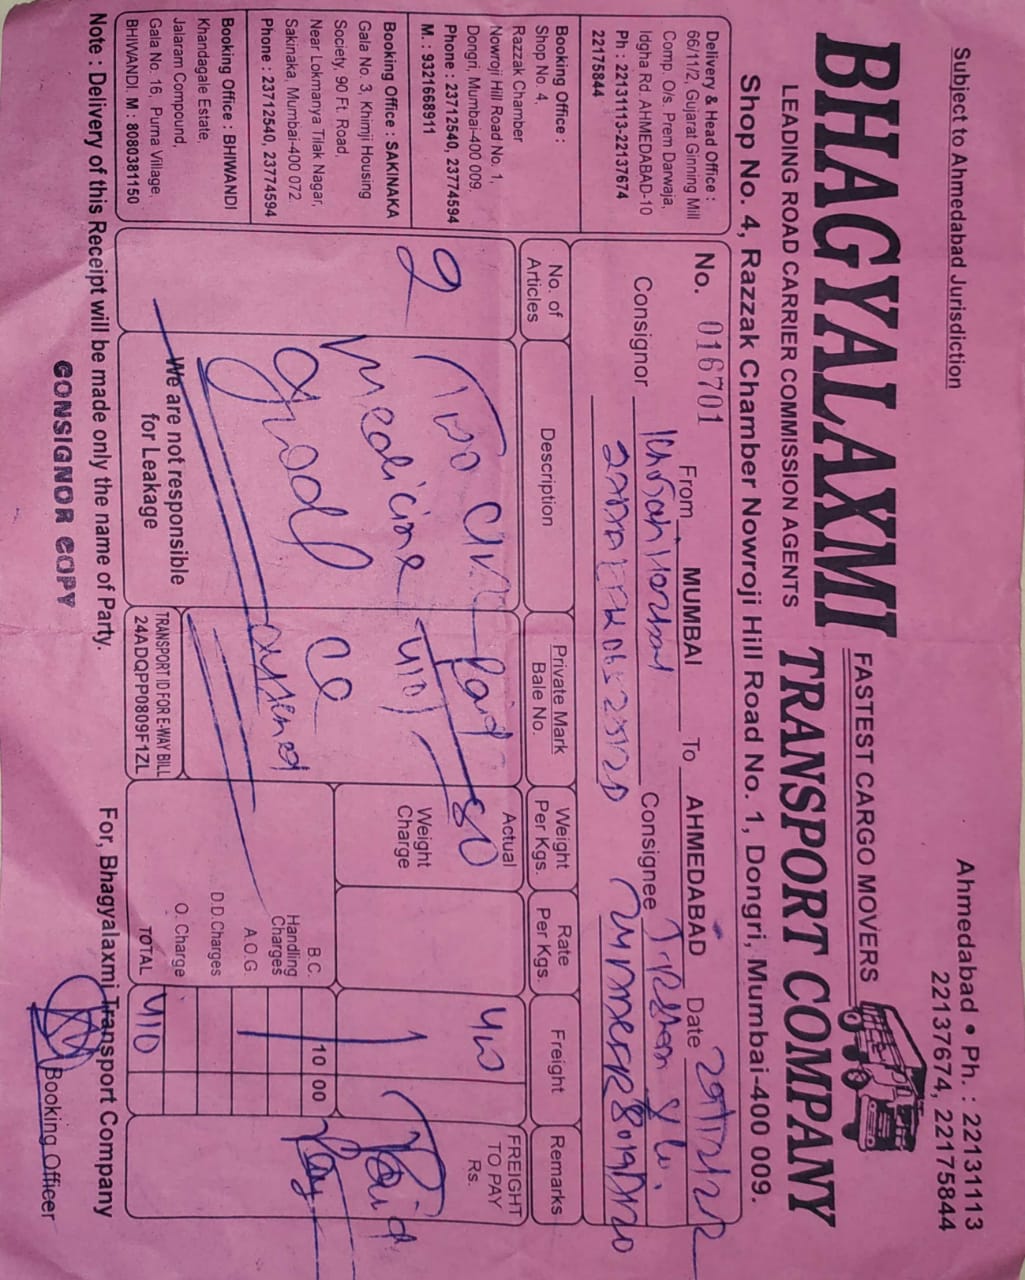 Subject to Ahmedabad Jurisdiction
Ahmedabad • Ph. : 22131113
22137674, 22175844
BHAGYALAXMI
FASTEST CARGO MOVERS
TRANSPORT COMPANY
LEADING ROAD CARRIER COMMISSION AGENTS
Shop No. 4, Razzak Chamber Nowroji Hill Road No. 1, Dongri, Mumbai-400 009.
Delivery & Head Office :
66/11/2, Gujarat Ginning Mill
Comp. O/s. Prem Darwaja,
Idgha Rd. AHMEDABAD-10
Ph : 22131113-22137674
22175844
Booking Office :
Shop No. 4,
Razzak Chamber
Nowroji Hill Road No. 1,
Dongri, Mumbai-400 009.
Phone : 23712540, 23774594
M. : 9321668911
Booking Office : SAKINAKA
Gala No. 3, Khimji Housing
Society, 90 Ft. Road,
Near Lokmanya Tilak Nagar,
Sakinaka, Mumbai-400 072
Phone : 23712540, 23774594
Booking Office : BHIWANDI
Khandagale Estate,
Jalaram Compound,
Gala No. 16, Purna Village,
BHIWANDI. M : 8080381150
No. 016701 From MUMBAI To AHMEDABAD Date
Consignor Consignee
No. of Articles Description Private Mark Bale No. Weight Per Kgs. Rate Per Kgs. Freight Remarks
2 Two Paid Actual 80 FREIGHT TO PAY Rs.
medicine 410 Weight Charge Paid
Good
B.C. 10 00
Handling Charges
A.O.G
D.D.Charges
O. Charge
TOTAL 410
We are not responsible
for Leakage
TRANSPORT ID FOR E-WAY BILL
24ADQPP0809F1ZL
Note : Delivery of this Receipt will be made only the name of Party.
For, Bhagyalaxmi Transport Company
CONSIGNOR COPY
Booking Officer